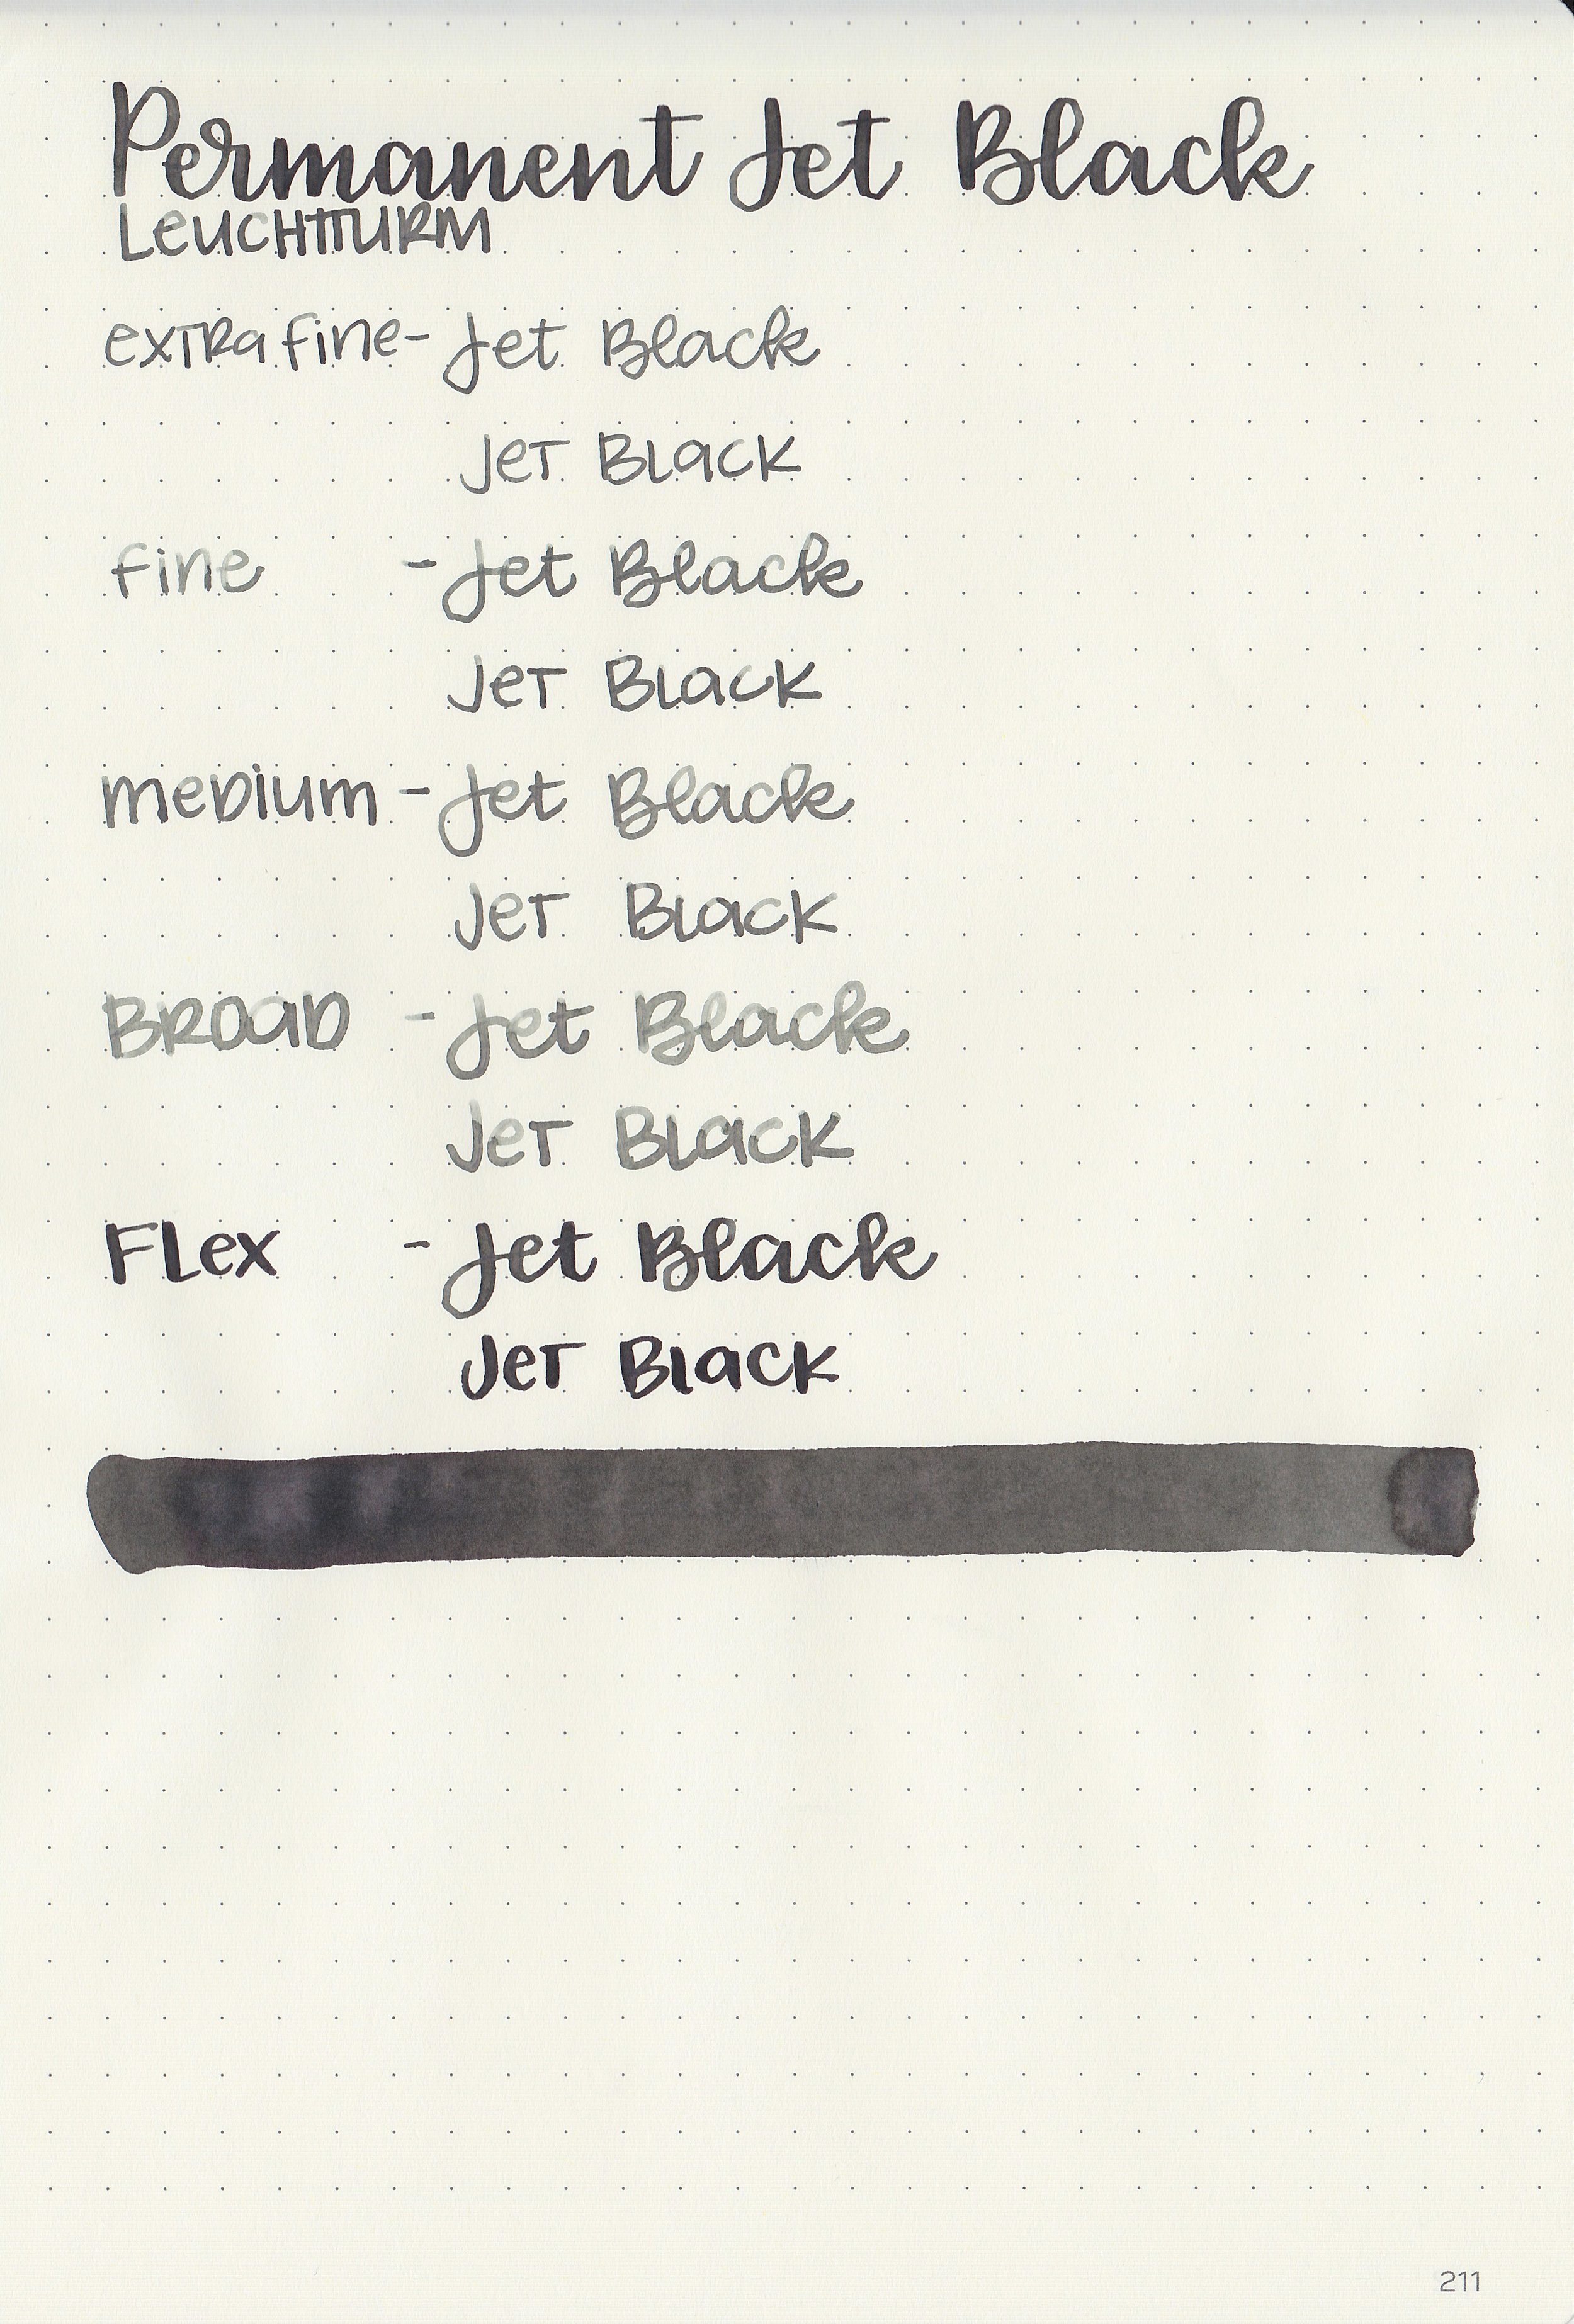 Permanent Jet Black
LEUCHTTURM
extra fine - Jet Black
Jet Black
fine - Jet Black
Jet Black
medium - Jet Black
Jet Black
BROAD - Jet Black
Jet Black
Flex - Jet Black
Jet Black
211